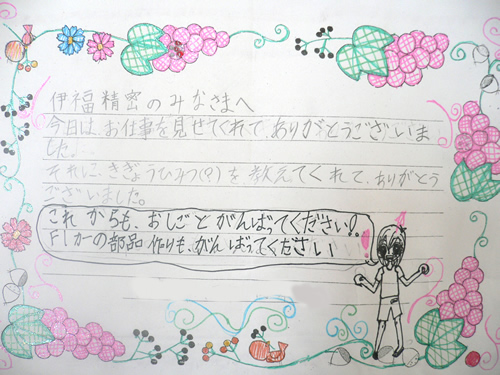 伊福精密のみなさまへ
今日は、お仕事を見せてくれて、ありがとうございま
した。
それに、きぎょうひみつ(?)を、教えてくれて、ありがとう
ございました。
これからも、おしごとがんばってください!
F1カーの部品作りも、がんばってください